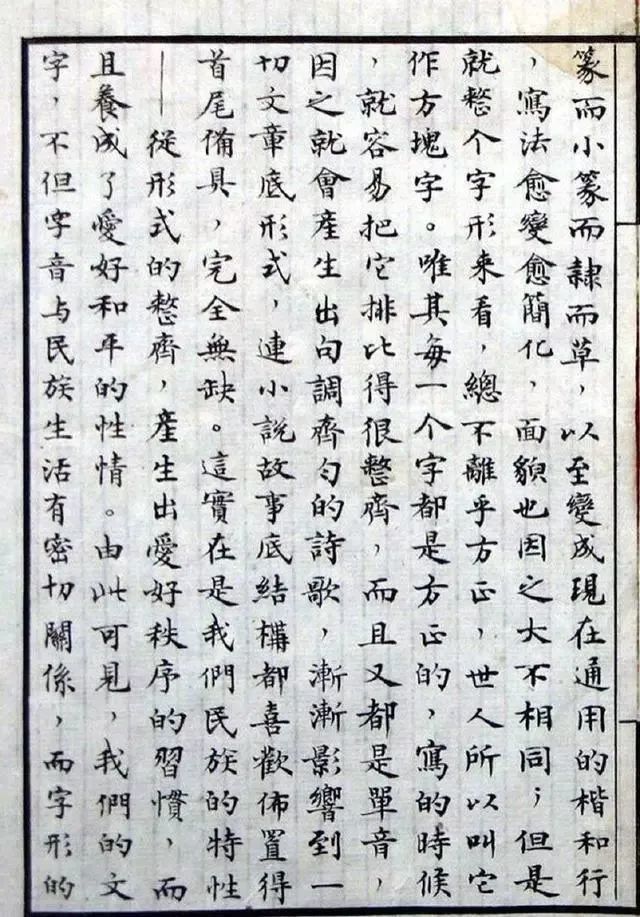 篆而小篆而隷而草，以至變成現在通用的楷和行
，寫法愈變愈簡化，面貌也因之大不相同；但是
就整个字形来看，總不離乎方正，世人所以叫它
作方塊字。唯其每一个字都是方正的，寫的時候
，就容易把它排比得很整齊，而且又都是單音，
因之就會產生出句調齊勻的詩歌，漸漸影響到一
切文章底形式，連小說故事底結構都喜歡佈置得
首尾備具，完全無缺。這實在是我們民族的特性
——從形式的整齊，產生出愛好秩序的習慣，而
且養成了愛好和平的性情。由此可見，我們的文
字，不但字音与民族生活有密切關係，而字形的